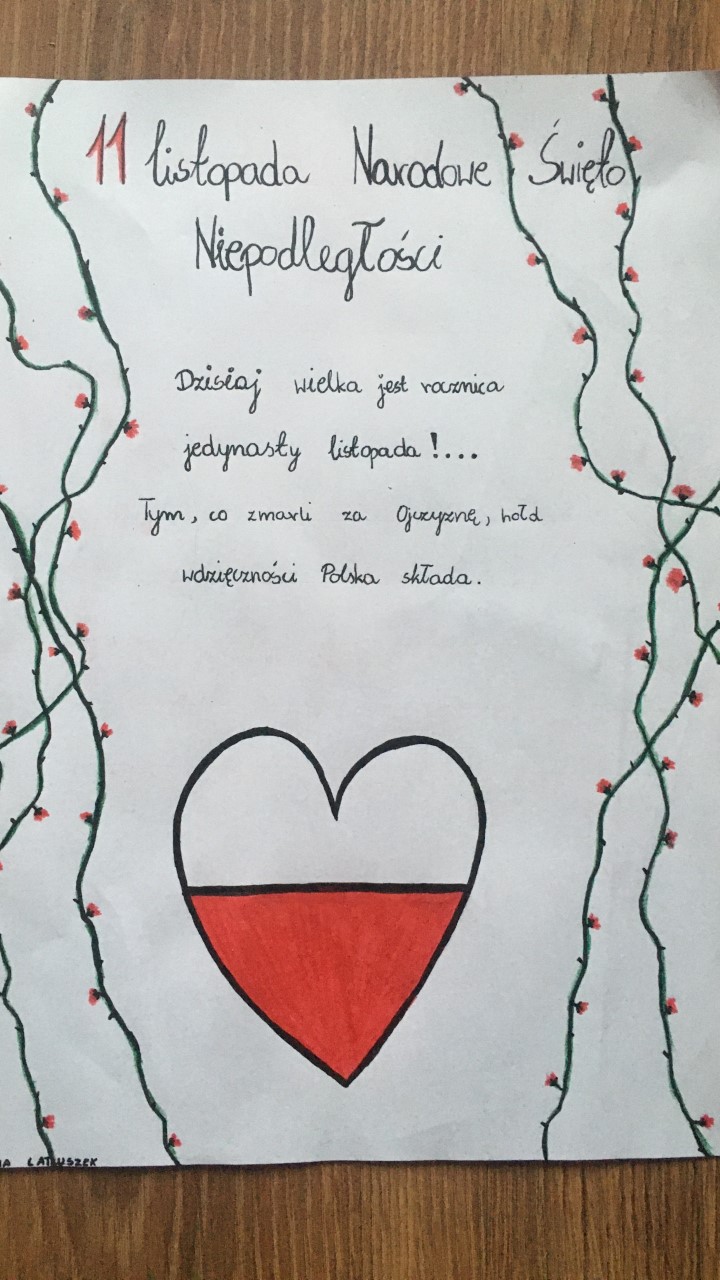 11 listopada Narodowe Święto
Niepodległości
Dzisiaj wielka jest rocznica
jedynasty listopada!...
Tym, co zmarli za Ojczyznę, hołd
wdzięczności Polska składa.